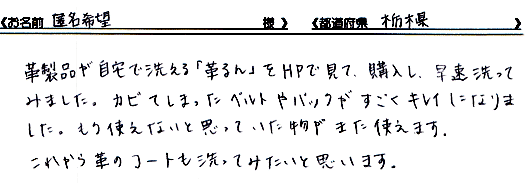 《お名前 匿名希望 様 》 《都道府県 栃木県 》
革製品が自宅で洗える「革るん」をHPで見て、購入し、早速洗って
みました。カビてしまったベルトやバックがすごくキレイになりま
した。もう使えないと思っていた物がまた使えます。
これから革のコートも洗ってみたいと思います。